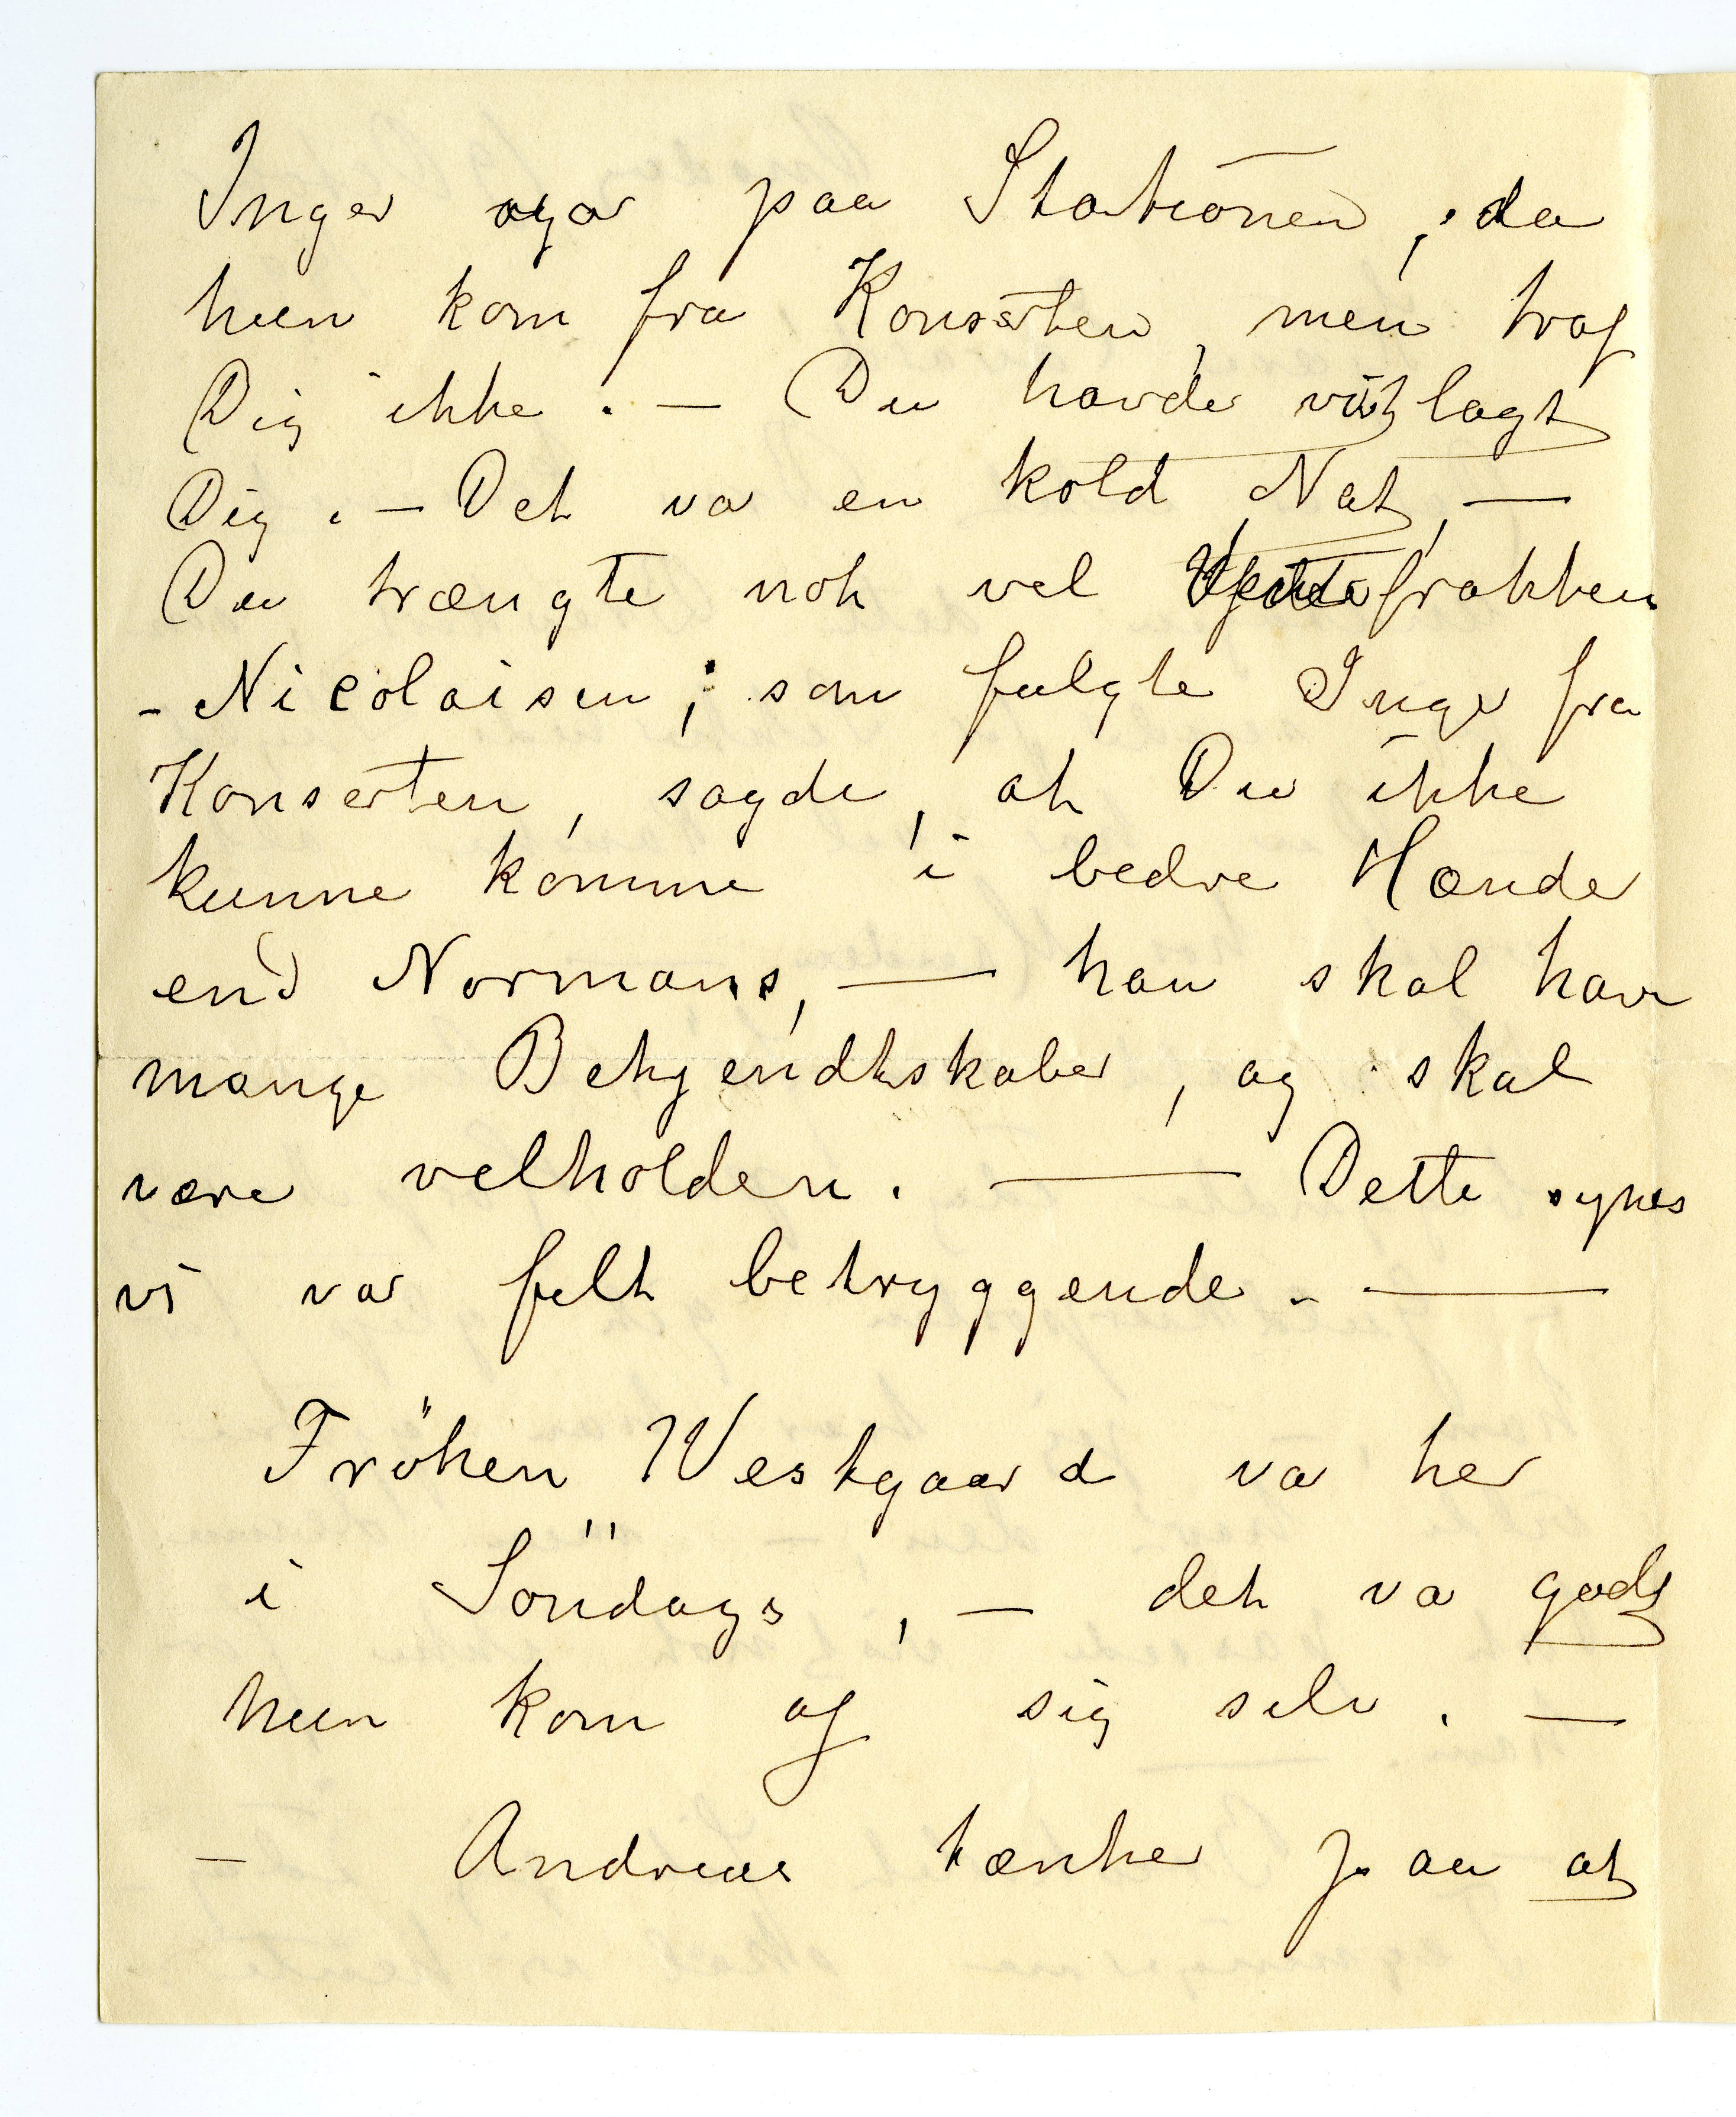 Inger var paa Stationen, da
hun kom fra Konserten, men traf
Dig ikke. — Du havde vist lagt
Dig. — Det var en kold Nat, —
Du trængte nok vel frakken
- Nicolaisen, som fulgte Inger fra
Konserten, sagde, at Du ikke
kunne komme i bedre Hænder
end Normans, — han skal have
mange Bekjendtskaber, og skal
være velholden. — Dette synes
vi var fult betryggende. —
Fröken Westgaard var her
i Söndags, — det var godt
hun kom af sig selv. —
— Andreas tænker paa at